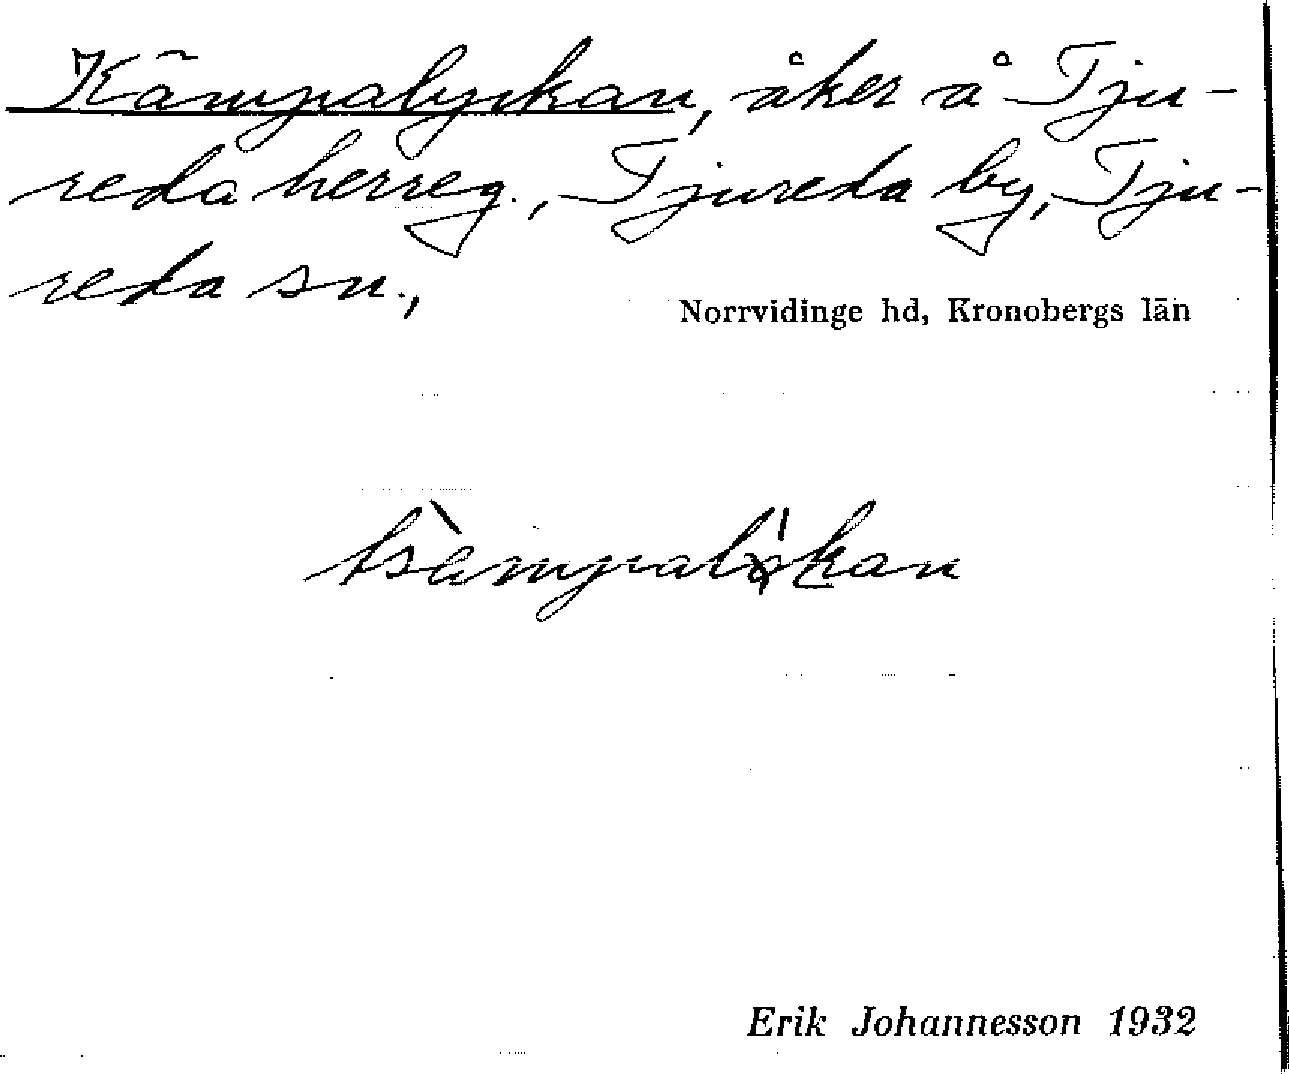 Kämpalyckan, åker å Tju-
reda herreg., Tjureda by, Tju-
reda sn.,
Norrvidinge hd, Kronobergs län
Erik Johannesson 1932